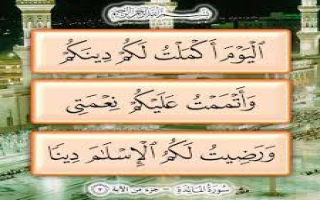 بسم الله الرحمن الرحيم
ٱلْيَوْمَ أَكْمَلْتُ لَكُمْ دِينَكُمْ
وَأَتْمَمْتُ عَلَيْكُمْ نِعْمَتِى
وَرَضِيتُ لَكُمُ ٱلْإِسْلَٰمَ دِينًا
سورة المائدة - جزء من الآية ٣